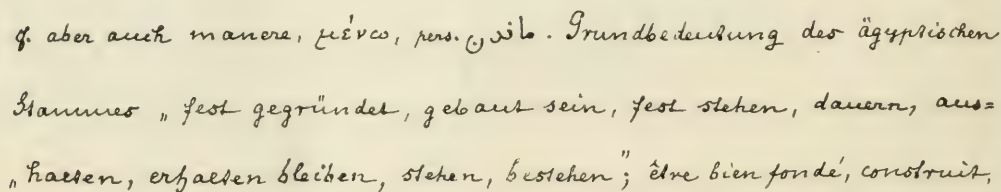 cf. aber auch manere, μένω, pers. ماندن. Grundbedeutung des ägyptischen
Stammes „fest gegründet, gebaut sein, fest stehen, dauern, aus=
„halten, erhalten bleiben, stehen, bestehen"; être bien fondé, construit,